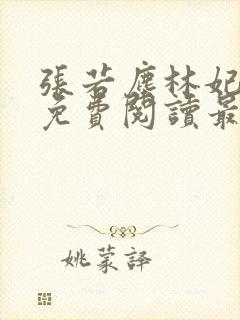 張若塵林妃
免費閱讀最
姚蒙譯